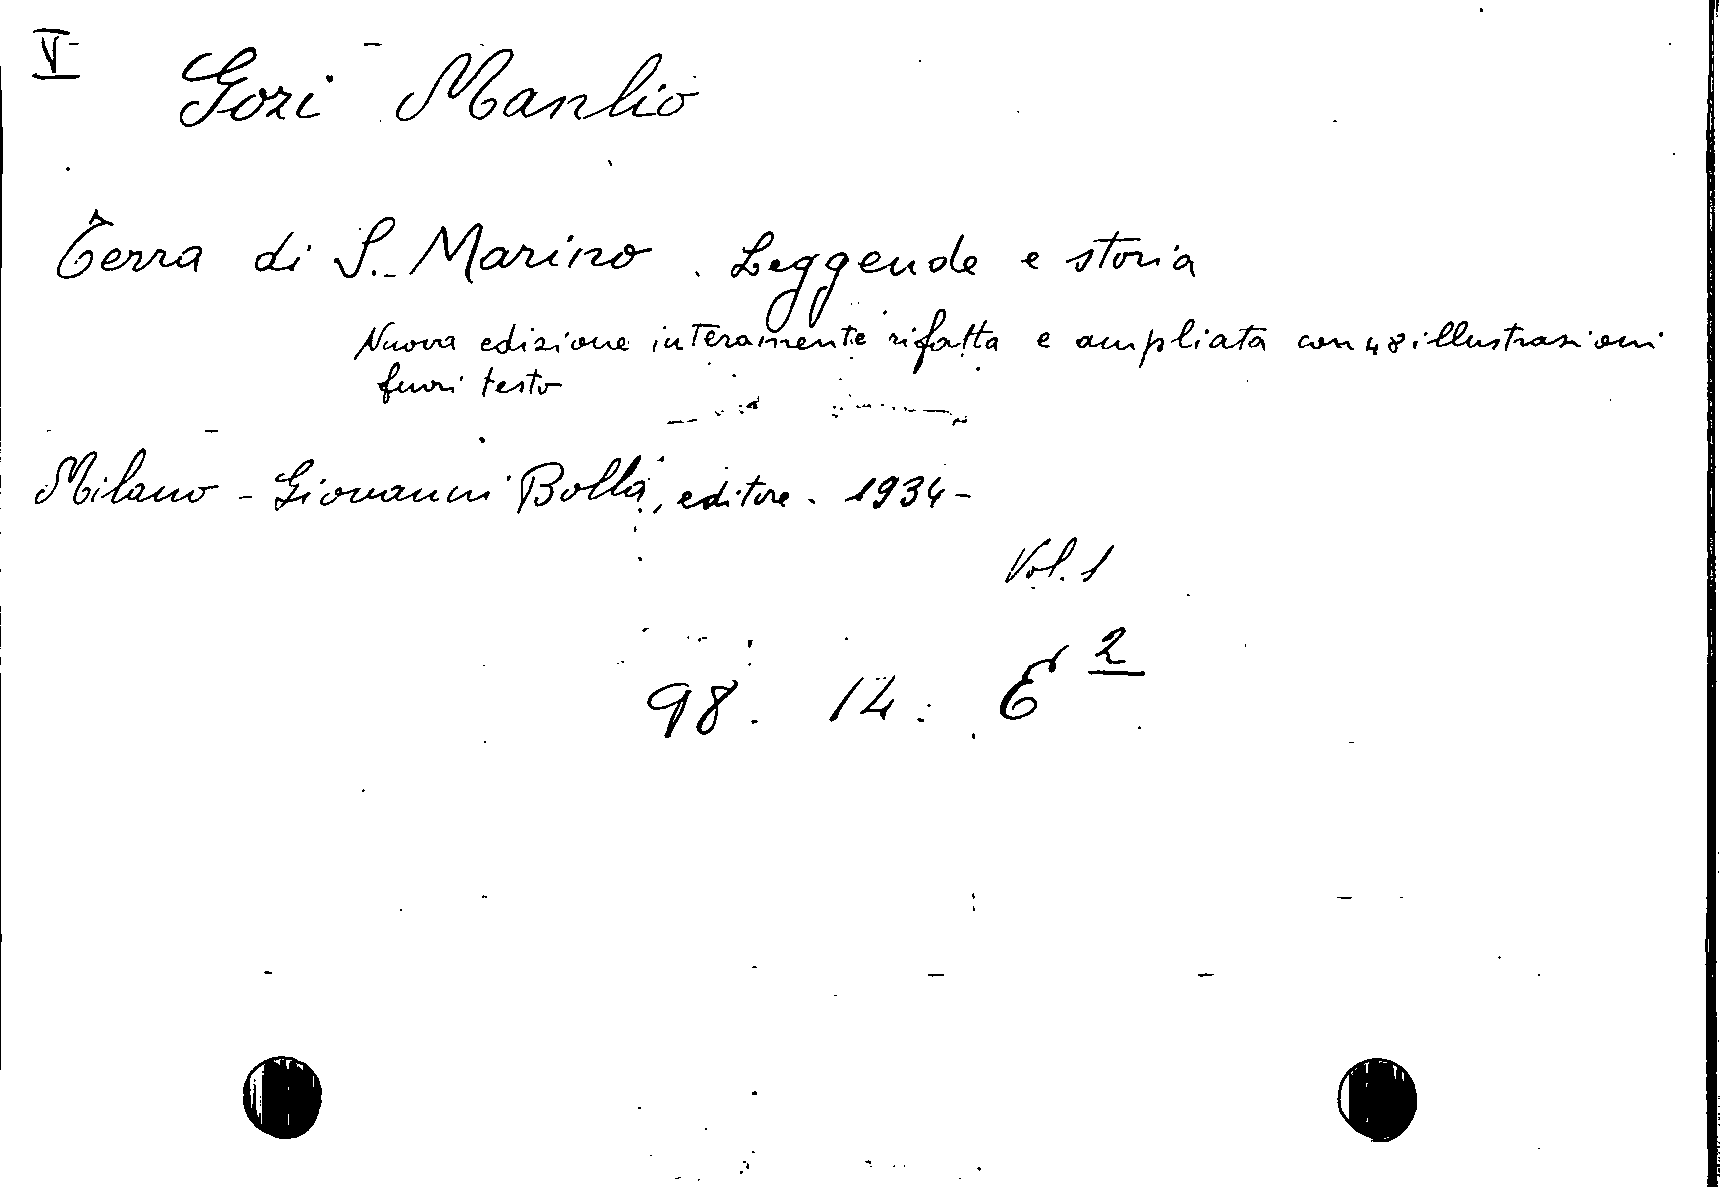 V
Gozi Manlio
Terra di S. Marino. Leggende e storia
Nuova edizione interamente rifatta e ampliata con 48 illustrazioni
fuori testo
Milano - Giovanni Bolla, editore. 1934-
Vol. 1
98. 14. E 2